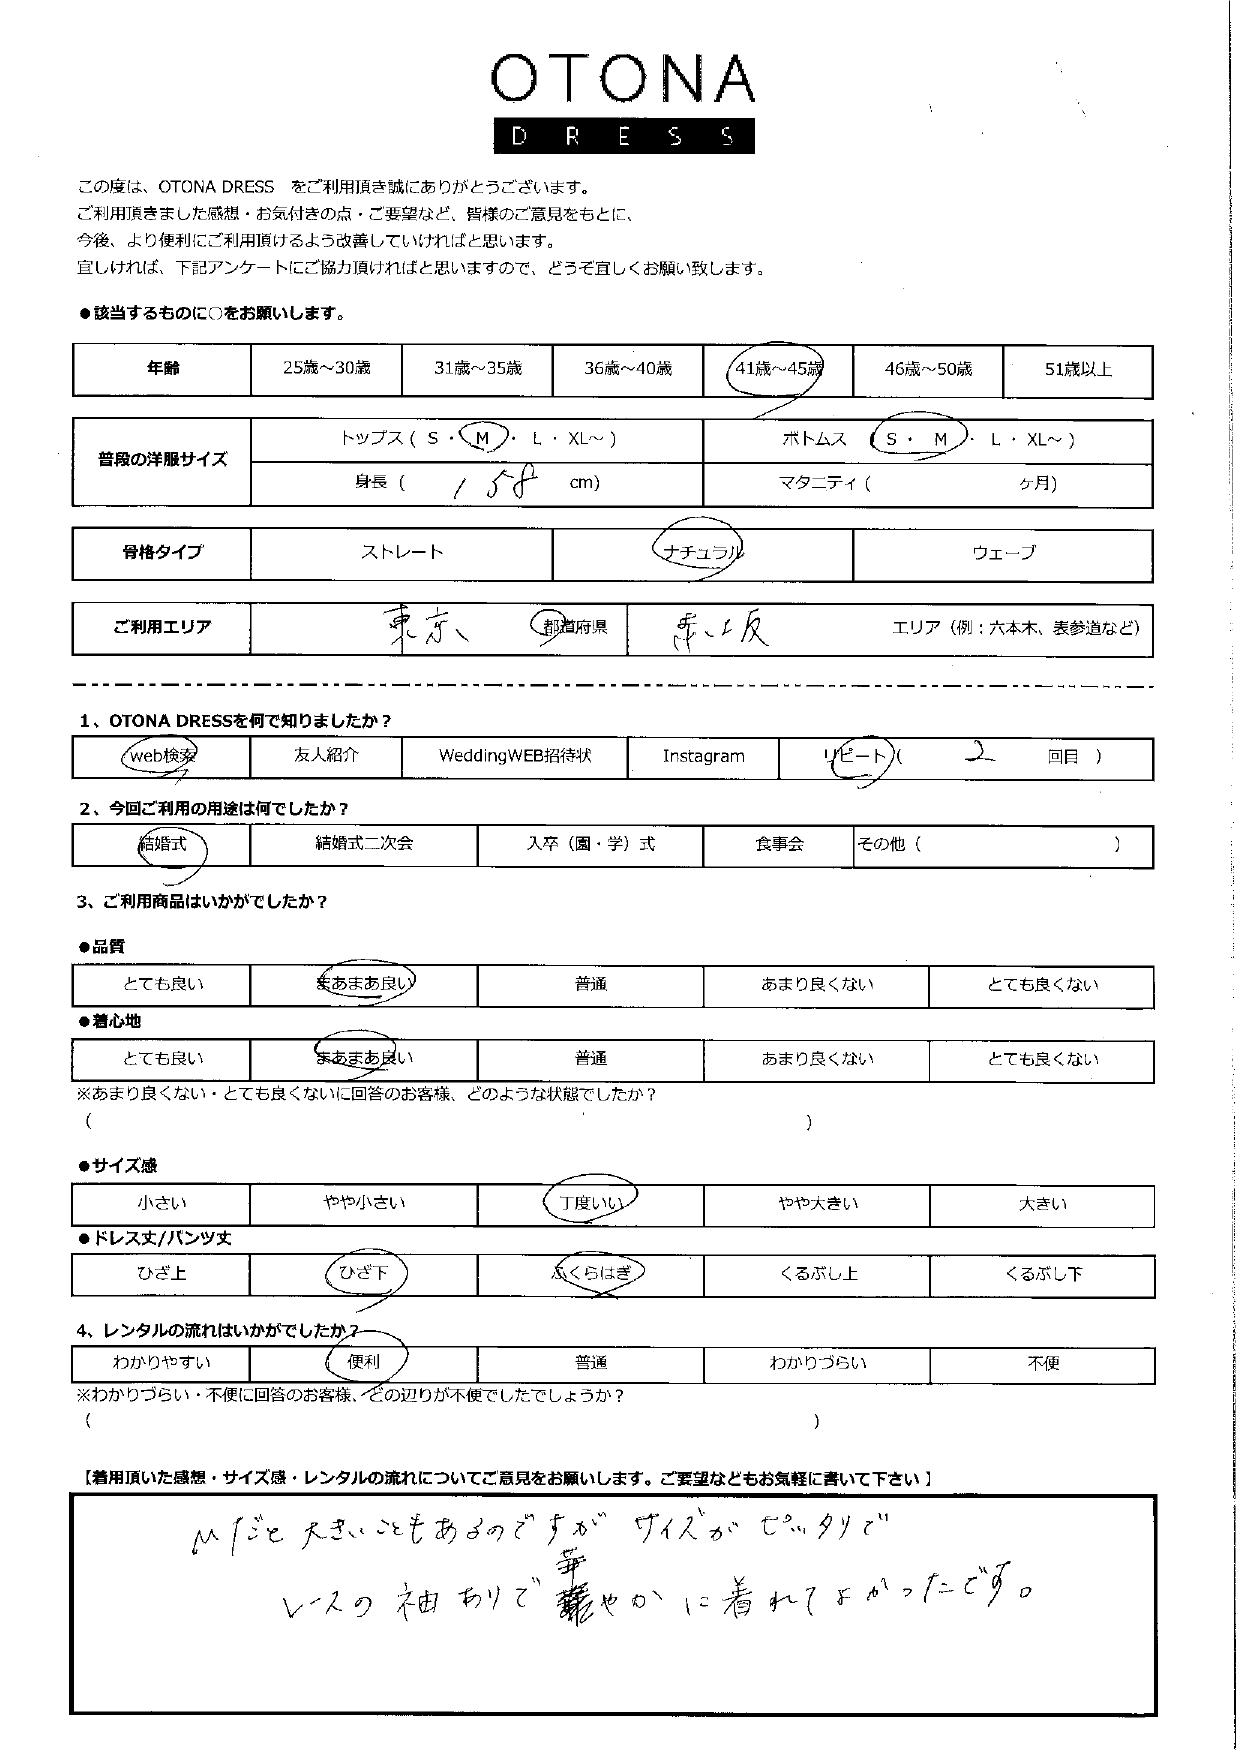 OTONA
DRESS
この度は、OTONA DRESS をご利用頂き誠にありがとうございます。
ご利用頂きました感想・お気付きの点・ご要望など、皆様のご意見をもとに、
今後、より便利にご利用頂けるよう改善していければと思います。
宜しければ、下記アンケートにご協力頂ければと思いますので、どうぞ宜しくお願い致します。
●該当するものに○をお願いします。
年齢 25歳～30歳 31歳～35歳 36歳～40歳 41歳～45歳 46歳～50歳 51歳以上
普段の洋服サイズ トップス ( S ・ M ・ L ・ XL～ ) ボトムス ( S ・ M ・ L ・ XL～ )
身長 ( 158 cm) マタニティ ( ヶ月)
骨格タイプ ストレート ナチュラル ウェーブ
ご利用エリア 東京 都道府県 赤坂 エリア（例：六本木、表参道など）
1、OTONA DRESSを何で知りましたか？
web検索 友人紹介 WeddingWEB招待状 Instagram リピート ( 2 回目 )
2、今回ご利用の用途は何でしたか？
結婚式 結婚式二次会 入卒（園・学）式 食事会 その他 ( )
3、ご利用商品はいかがでしたか？
●品質
とても良い まあまあ良い 普通 あまり良くない とても良くない
●着心地
とても良い まあまあ良い 普通 あまり良くない とても良くない
※あまり良くない・とても良くないに回答のお客様、どのような状態でしたか？
( )
●サイズ感
小さい やや小さい 丁度いい やや大きい 大きい
●ドレス丈/パンツ丈
ひざ上 ひざ下 ふくらはぎ くるぶし上 くるぶし下
4、レンタルの流れはいかがでしたか？
わかりやすい 便利 普通 わかりづらい 不便
※わかりづらい・不便に回答のお客様、どの辺りが不便でしたでしょうか？
( )
【着用頂いた感想・サイズ感・レンタルの流れについてご意見をお願いします。ご要望などもお気軽に書いて下さい】
Mだと大きいこともあるのですがサイズがピッタリで
レースの袖ありで華やかに着れてよかったです。